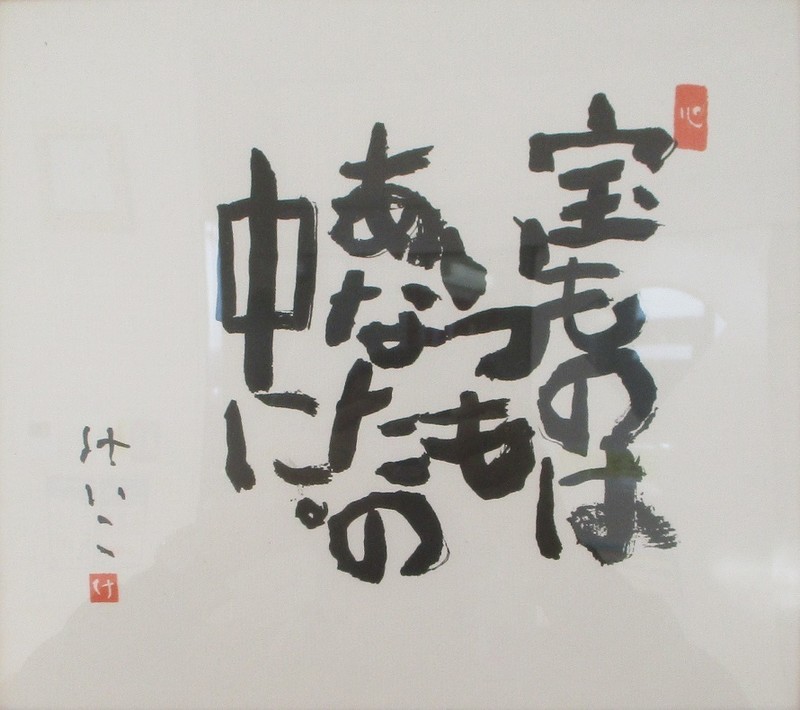 心
宝ものは
いつも
あなたの
中に。
け